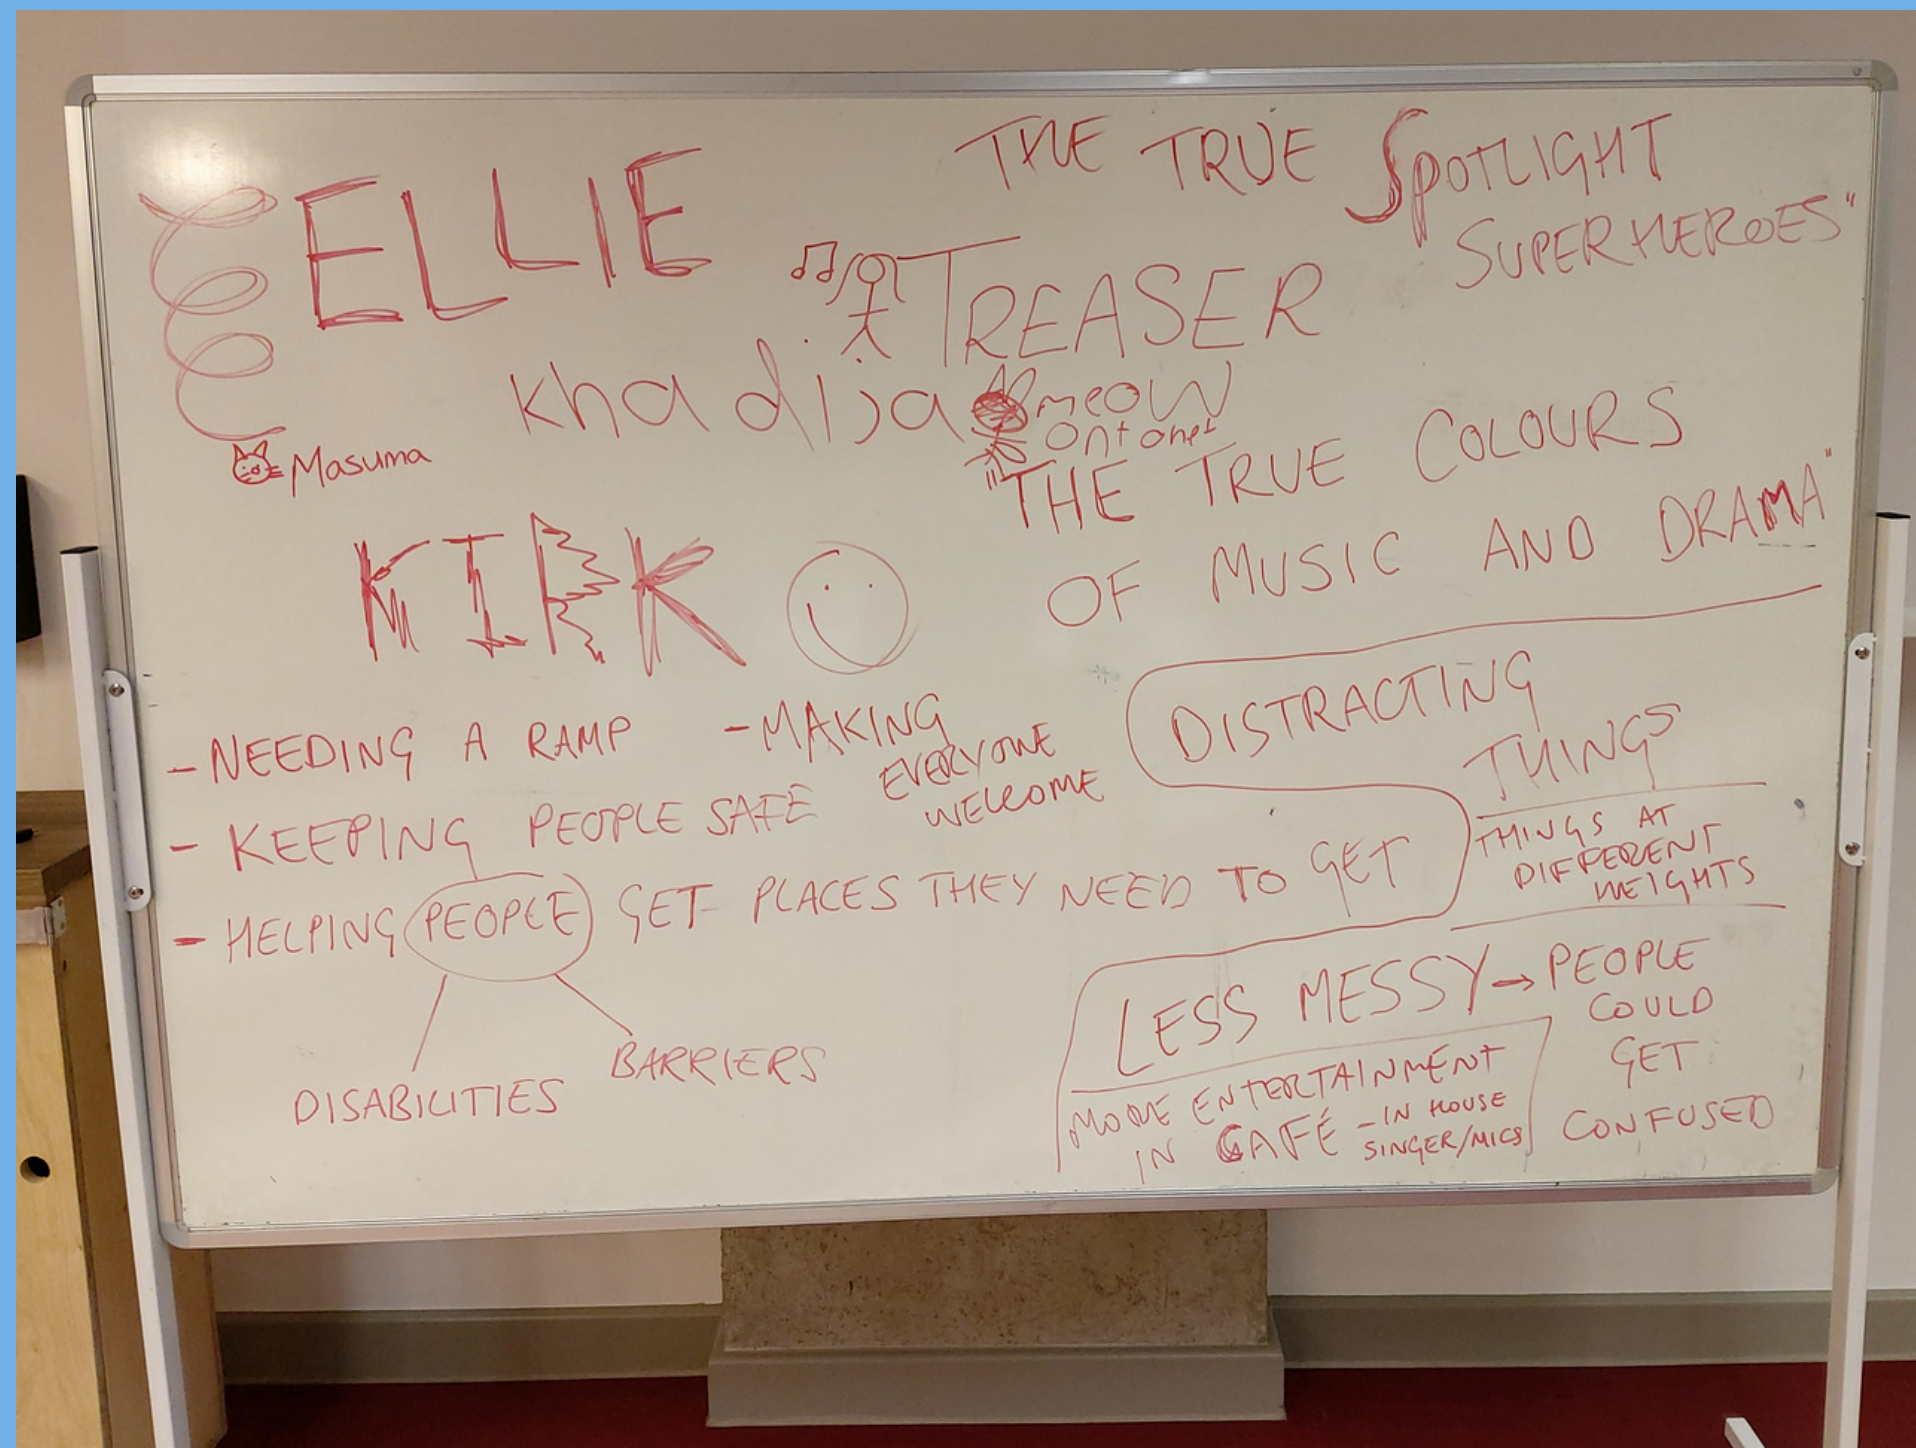 ELLIE
THE TRUE SPOTLIGHT
SUPERHEROES"
TREASER
khadija
meow
Masuma
"THE TRUE COLOURS
OF MUSIC AND DRAMA"
KIRK
- NEEDING A RAMP
- MAKING
EVERYONE
WELCOME
- KEEPING PEOPLE SAFE
- HELPING PEOPLE GET PLACES THEY NEED TO GET
DISABILITIES
BARRIERS
DISTRACTING
THINGS
THINGS AT
DIFFERENT
HEIGHTS
LESS MESSY → PEOPLE
COULD
GET
CONFUSED
MORE ENTERTAINMENT
IN CAFÉ - IN HOUSE
SINGER/MICS